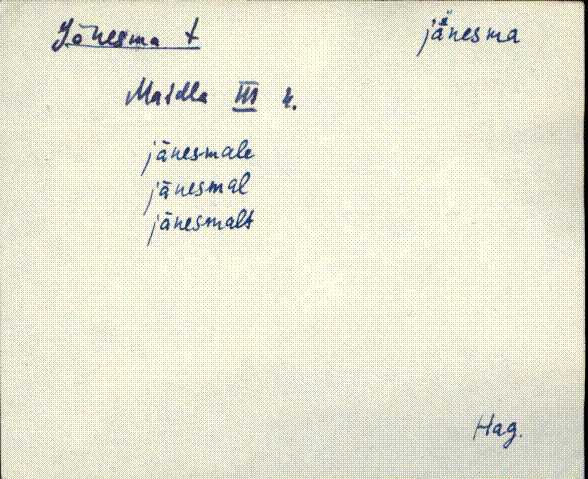 Jänesma t
jänesma
Maidla III k.
jänesmale
jänesmal
jänesmalt
Hag.